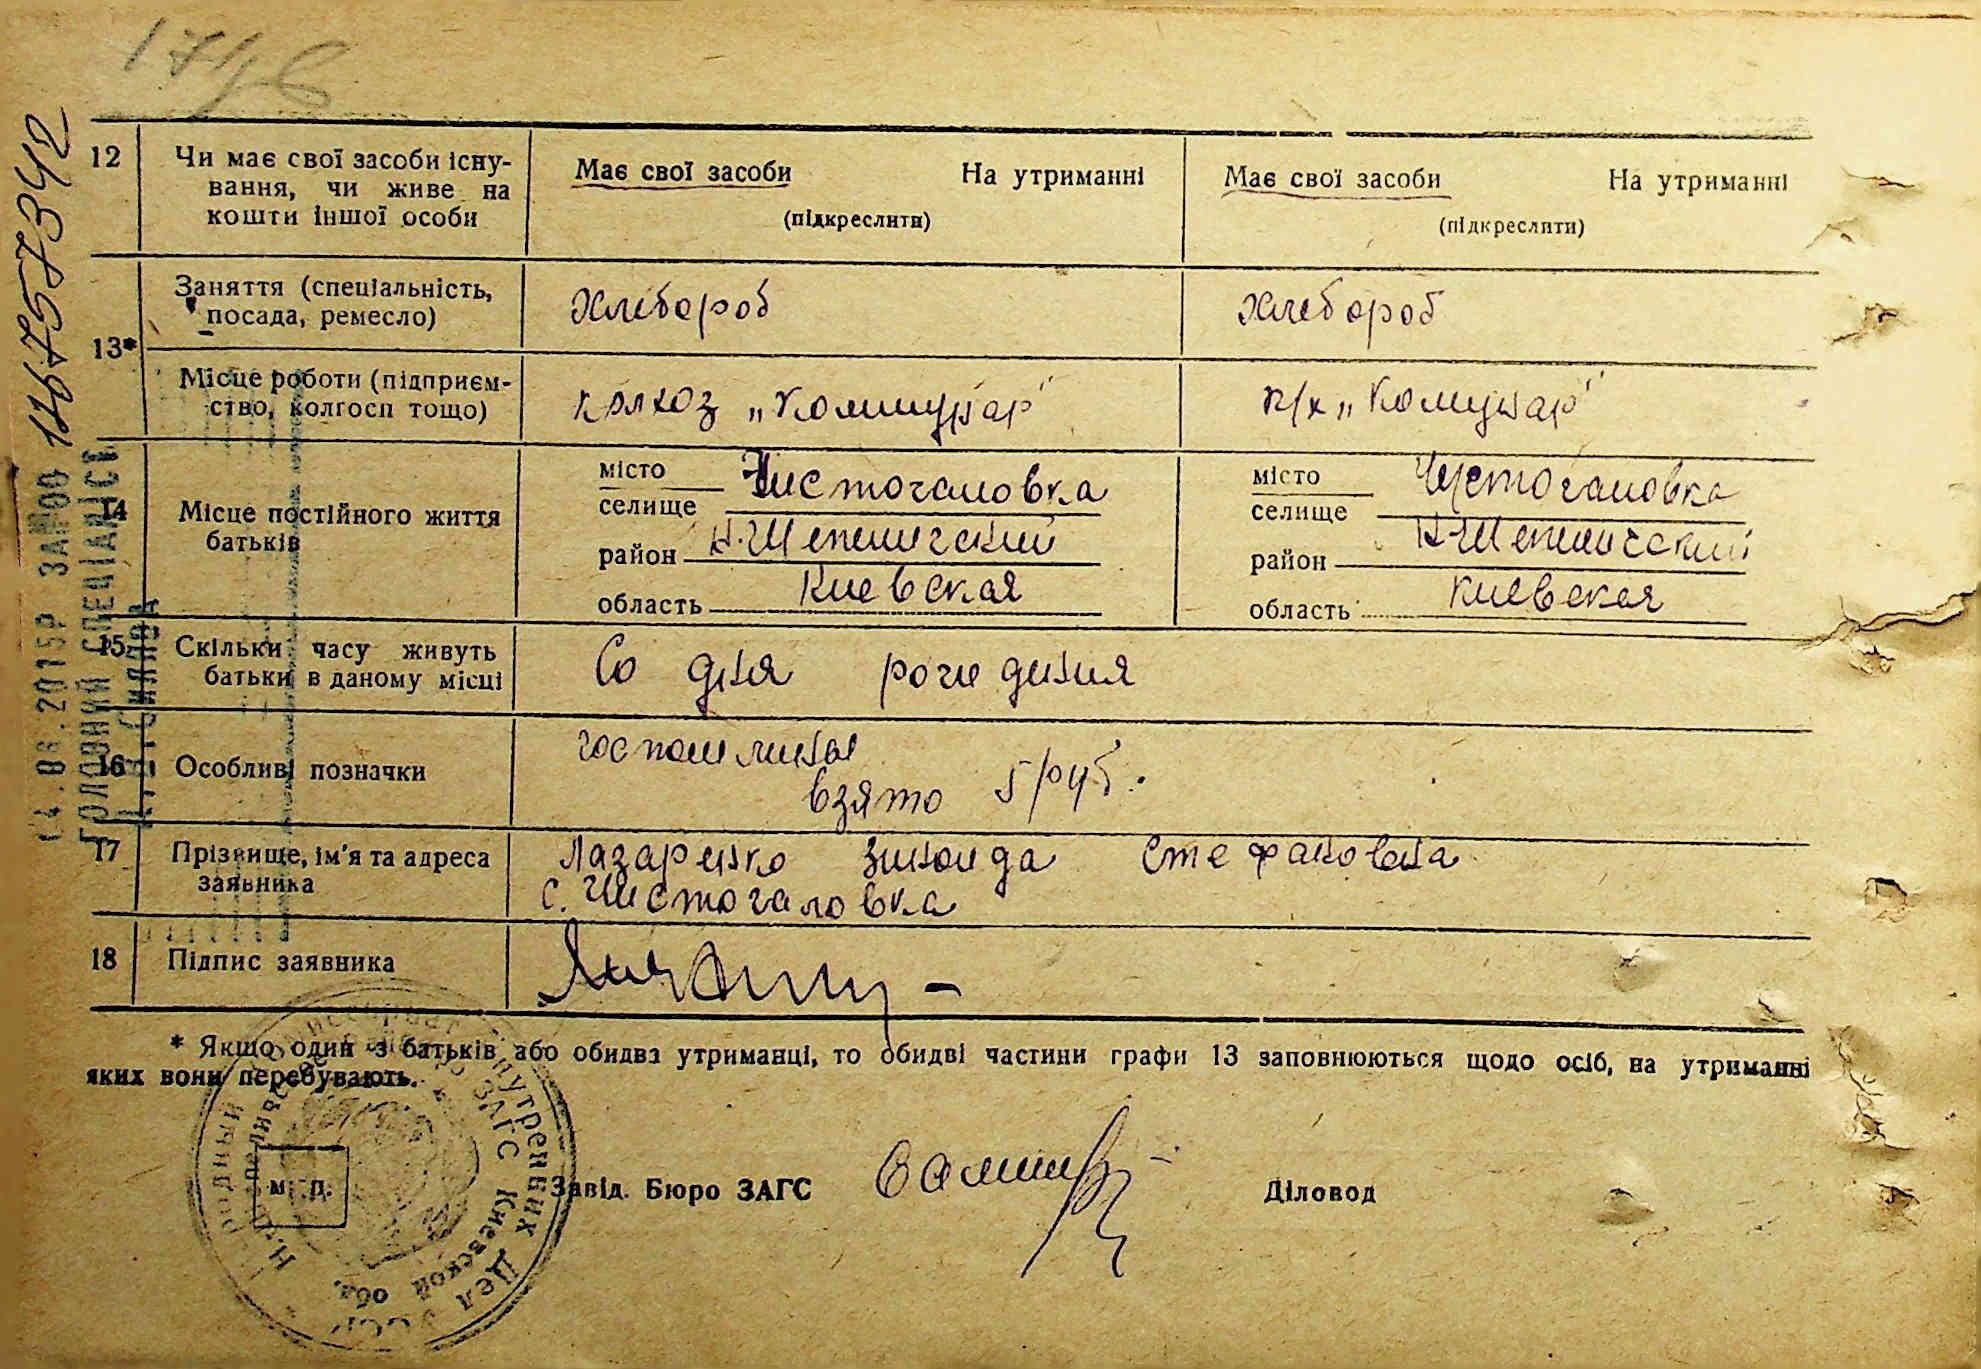 171/8
116757342
12 Чи має свої засоби існу-
вання, чи живе на
кошти іншої особи
Має свої засоби На утриманні
(підкреслити)
Має свої засоби На утриманні
(підкреслити)
13*
Заняття (спеціальність,
посада, ремесло)
Хлебороб
Хлебороб
Місце роботи (підприєм-
ство, колгосп тощо)
колхоз „Коммунар"
к/х „Комунар"
14 Місце постійного життя
батьків
місто
селище Чистогаловка
район Н-Шепеличский
область Киевская
місто
селище Чистогаловка
район Н-Шепеличский
область Киевская
15 Скільки часу живуть
батьки в даному місці
Со дня рождения
16 Особливі позначки
госпошлины
взято 5 руб.
17 Прізвище, ім'я та адреса
заявника
Лазаренко Зинаида Стефановна
с. Чистогаловка
18 Підпис заявника
* Якщо один з батьків або обидва утриманці, то обидві частини графи 13 заповнюються щодо осіб, на утриманні
яких вони перебувають.
м. п.
Завід. Бюро ЗАГС
Діловод
ГОЛОВНИЙ СПЕЦІАЛІСТ
Внутренних Дел
ЗАГС Киевской обл.